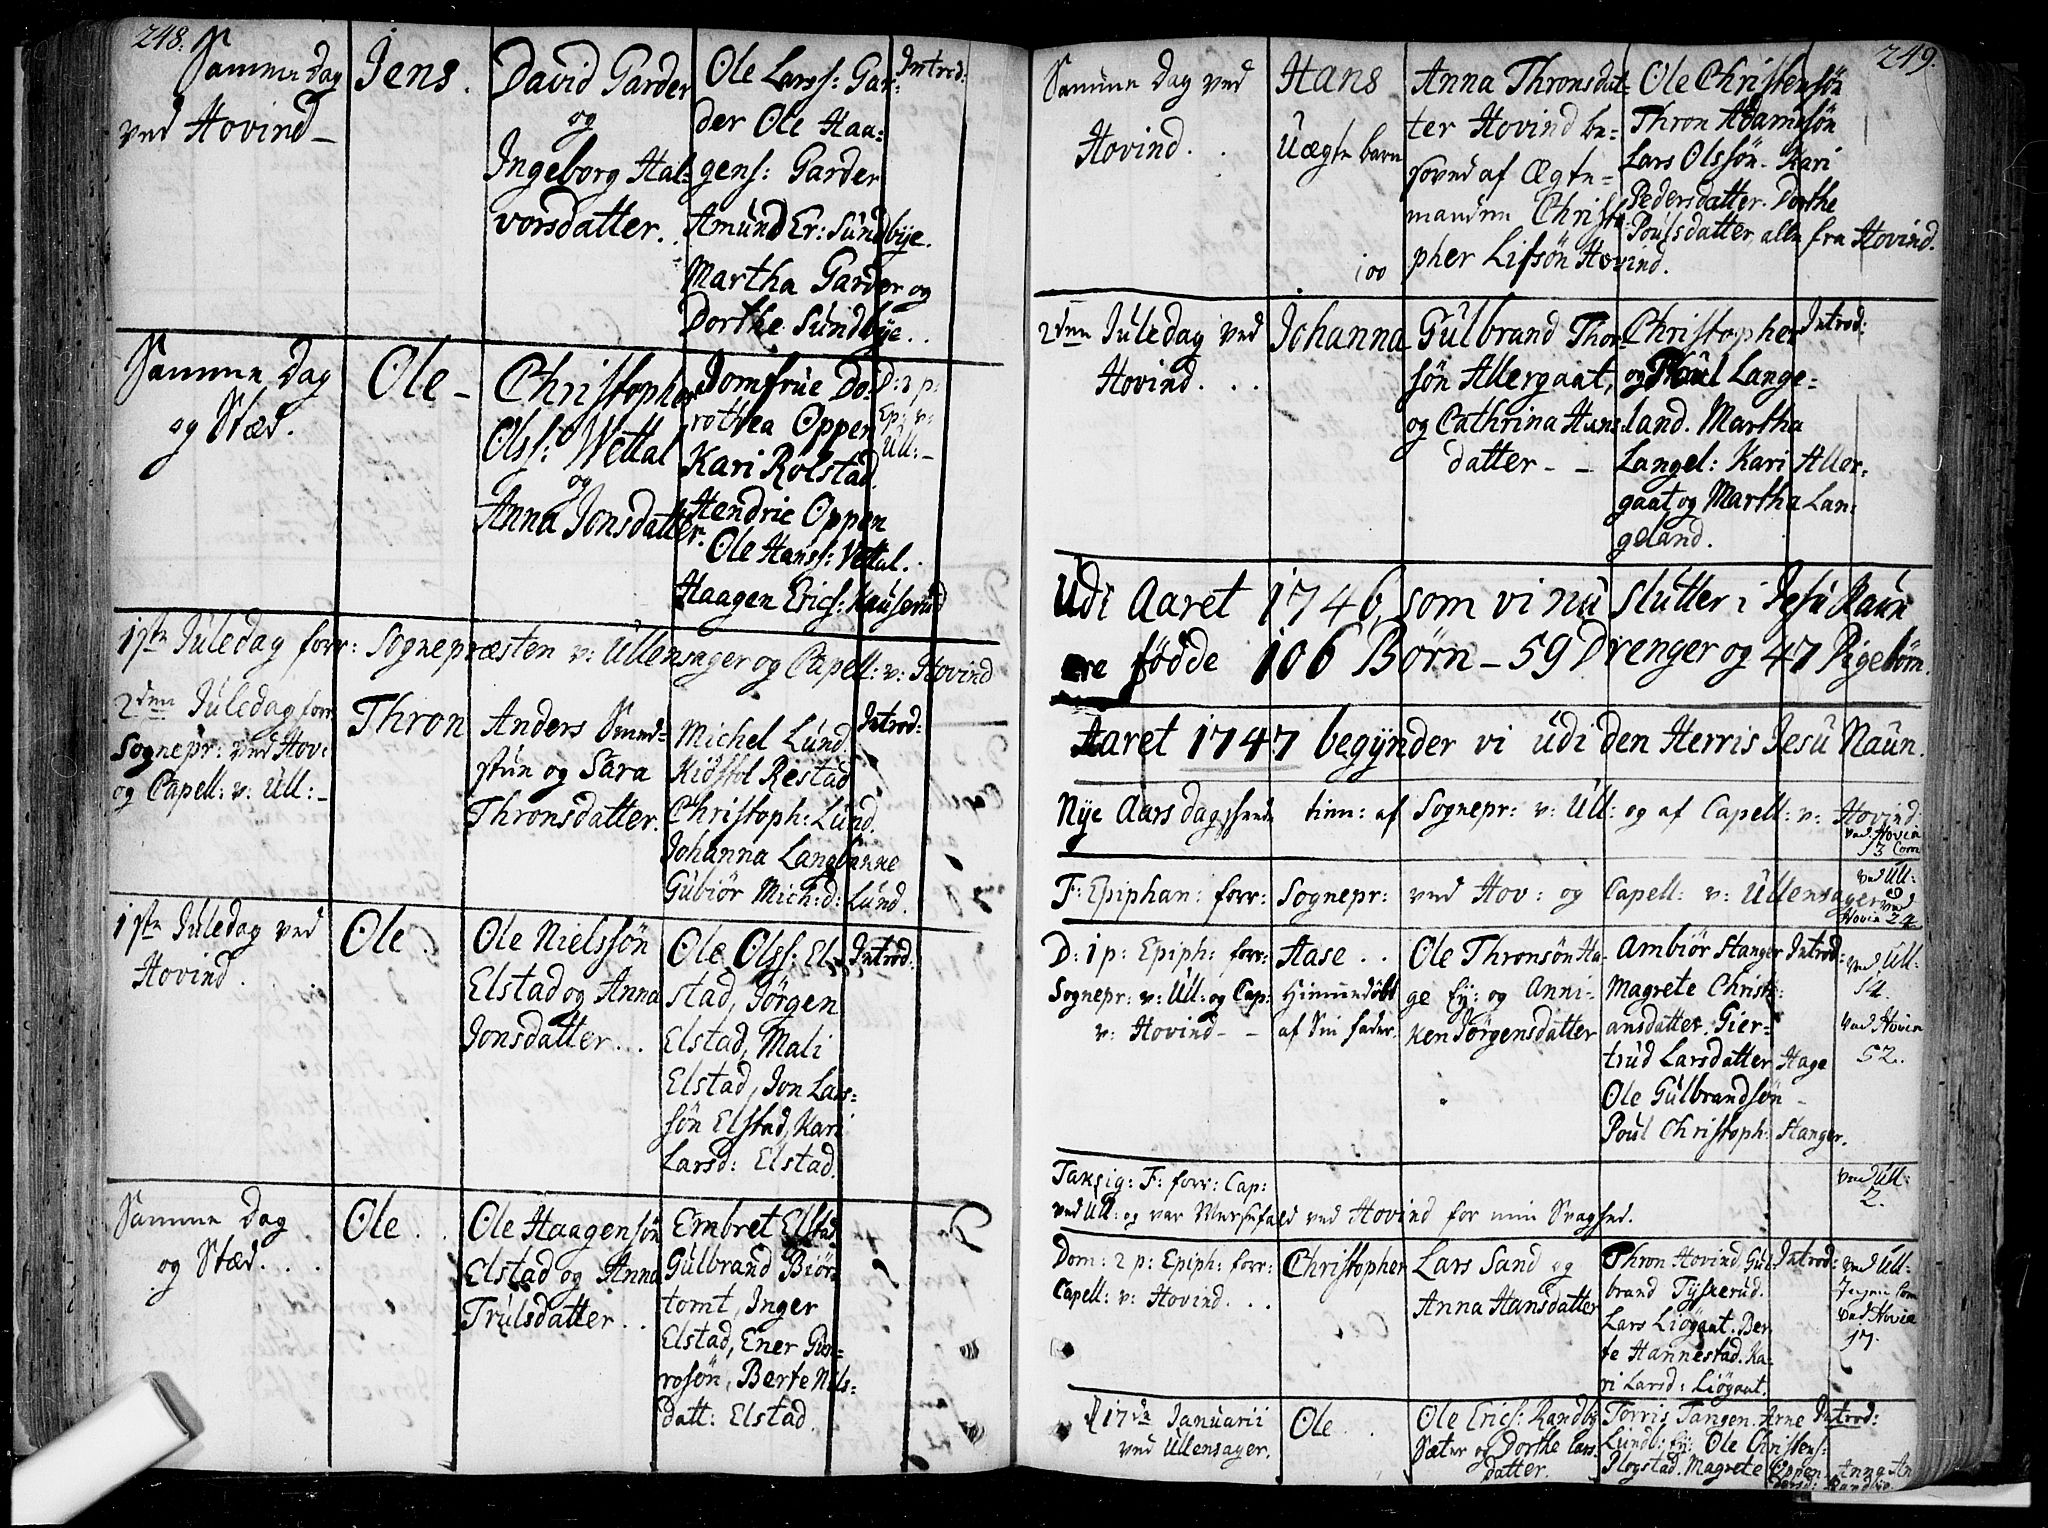 248.
Samme Dag
ved Hovind —
Jens.
David Garder
og
Ingeborg Hal-
vorsdatter.
Ole Larss: Gar-
der Ole Haa-
gens: Garder
Amund Er: Sundbye.
Martha Garder og
Dorthe Sundbye..
Introd:
Samme Dag
og Stæd.
Ole —
Christopher
Olss: Wettal
og
Anna Jonsdatter.
Jomfrue Do-
rothea Oppen
Kari Rolstad.
Hendric Oppen
Ole Hanss: Vettal.
Haagen Erics: Kauserud
D: 2 p:
Ep: v:
Ull: —
1ste Juledag forr: Sognepræsten v: Ullensager og Capell: v: Hovind
2den Juledag forr:
Sognepr: ved Hov:
og Capell: v: Ull: —
Thron
Anders Smed-
stun og Sara
Thronsdatter.
Michel Lund
Kidstol Restad
Christoph: Lund.
Johanna Langbakke
Gubiör Mich: d: Lund.
Introd:
1ste Juledag ved
Hovind.
Ole
Ole Nielssön
Elstad og Anna
Jonsdatter...
Ole Olss: El-
stad, Jörgen
Elstad, Mali
Elstad, Jon Lars-
sön Elstad, Kari
Larsd: Elstad.
Introd:
Samme Dag
og Stæd...
Ole..
Ole Haagensön
Elstad og Anna
Trulsdatter..
Embret Elstad
Gulbrand Biörn
tomt, Inger
Elstad, Ener Gun-
rosön, Berte Nils-
datt: Elstad.
249.
Samme Dag ved
Hovind..
Hans
Uægte barn
100
Anna Thronsdat-
ter Hovind be-
soved af Ægte-
manden Christo-
pher Lifsön Hovind.
Ole Christensön
Thron Adamsön
Lars Olssön. Kari
Pedersdatter. Dorthe
Poulsdatter alle fra Hovind.
2den Juledag ved
Hovind...
Johanna
Gulbrand Thor-
sön Allergaat,
og Cathrina Hans-
datter — —
Christopher
og Poul Lange-
land. Martha
Langel: Kari Aller-
gaat og Martha Lan-
geland.
Introd:
Udi Aaret 1746, som vi nu slutter i Jesu Naun
ere fødde 106 Børn — 59 Drenger og 47 Pigebørn.
Aaret 1747 begynder vi udi den Herris Jesu Naun.
Nye Aars dag tien: af Sognepr: v: Ull: og af Capell: v: Hovind:
ved Hovin
13 Com
F: Epiphan: forr: Sognepr: ved Hov: og Capell: v: Ullensager
ved Ull:
ved
Hovin 24
D: 1 p: Epiph: forr:
Sognepr: v: Ull: og Cap:
v: Hovind — —
Aase..
Hiemmedöbt
af Sin fader.
Ole Thronsön Ha-
ge Ey: og Anni-
ken Jörgensdatter
Ambiör Stanger
Magrete Christi-
ansdatter. Gier-
trud Larsdatter Hage
Ole Gulbrandsön —
Poul Christoph: Stanger.
Introd:
ved Ull:
14.
ved Hovin
52.
Taksig: F: forr: Cap:
ved Ull: og var Messefald ved Hovind for min Svaghed.
ved Ull:
2.
Dom: 2 p: Epiph: forr:
Capell: v: Hovind...
Christopher
Lars Sand og
Anna Hansdatter
Thron Hovind Gul-
brand Tyskerud.
Lars Liögaat. Ber-
te Hannestad. Ka-
ri Larsd: Liögaat.
Introd:
ved Ull:
Ingen Com
ved Hovin
17.
d 17de Januarii
ved Ullensager.
Ole..
Ole Erics: Randby
Sæter og Dorthe Lars-
datter.
Torris Tangen. Arne
Lundb: Ey: Ole Christens:
Plogstad. Magrete Oppen. Anna An
dersd: Randbye.
Introd: